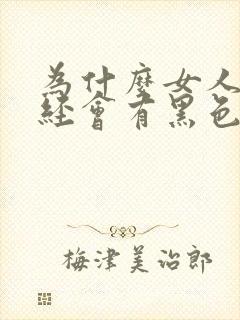 為什麼女人
經會有黑色
梅津美治郎